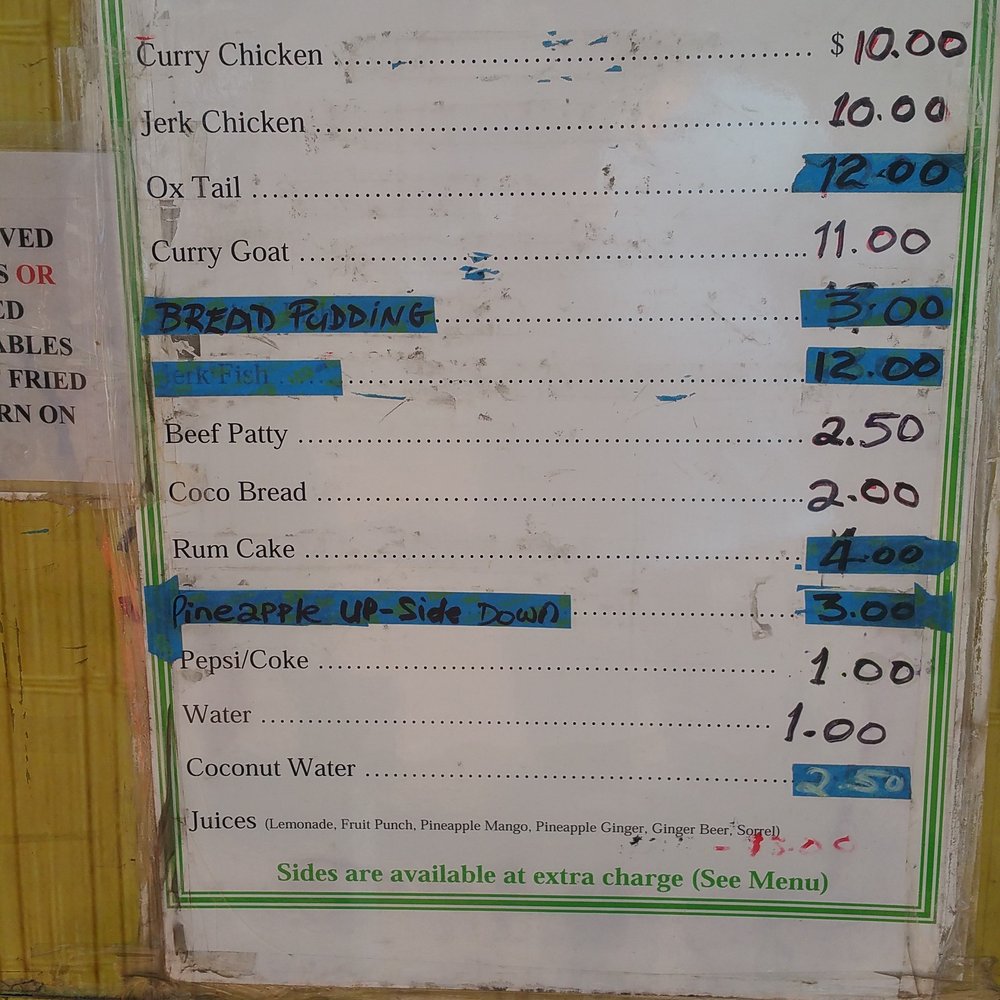 VED
S OR
ED
ABLES
FRIED
RN ON
Curry Chicken ........ $ 10.00
Jerk Chicken ........ 10.00
Ox Tail ........ 12.00
Curry Goat ........ 11.00
BREAD PUDDING ........ 3.00
Jerk Fish ........ 12.00
Beef Patty ........ 2.50
Coco Bread ........ 2.00
Rum Cake ........ 4.00
Pineapple UP-Side Down ........ 3.00
Pepsi/Coke ........ 1.00
Water ........ 1.00
Coconut Water ........ 2.50
Juices (Lemonade, Fruit Punch, Pineapple Mango, Pineapple Ginger, Ginger Beer, Sorrel)
Sides are available at extra charge (See Menu)